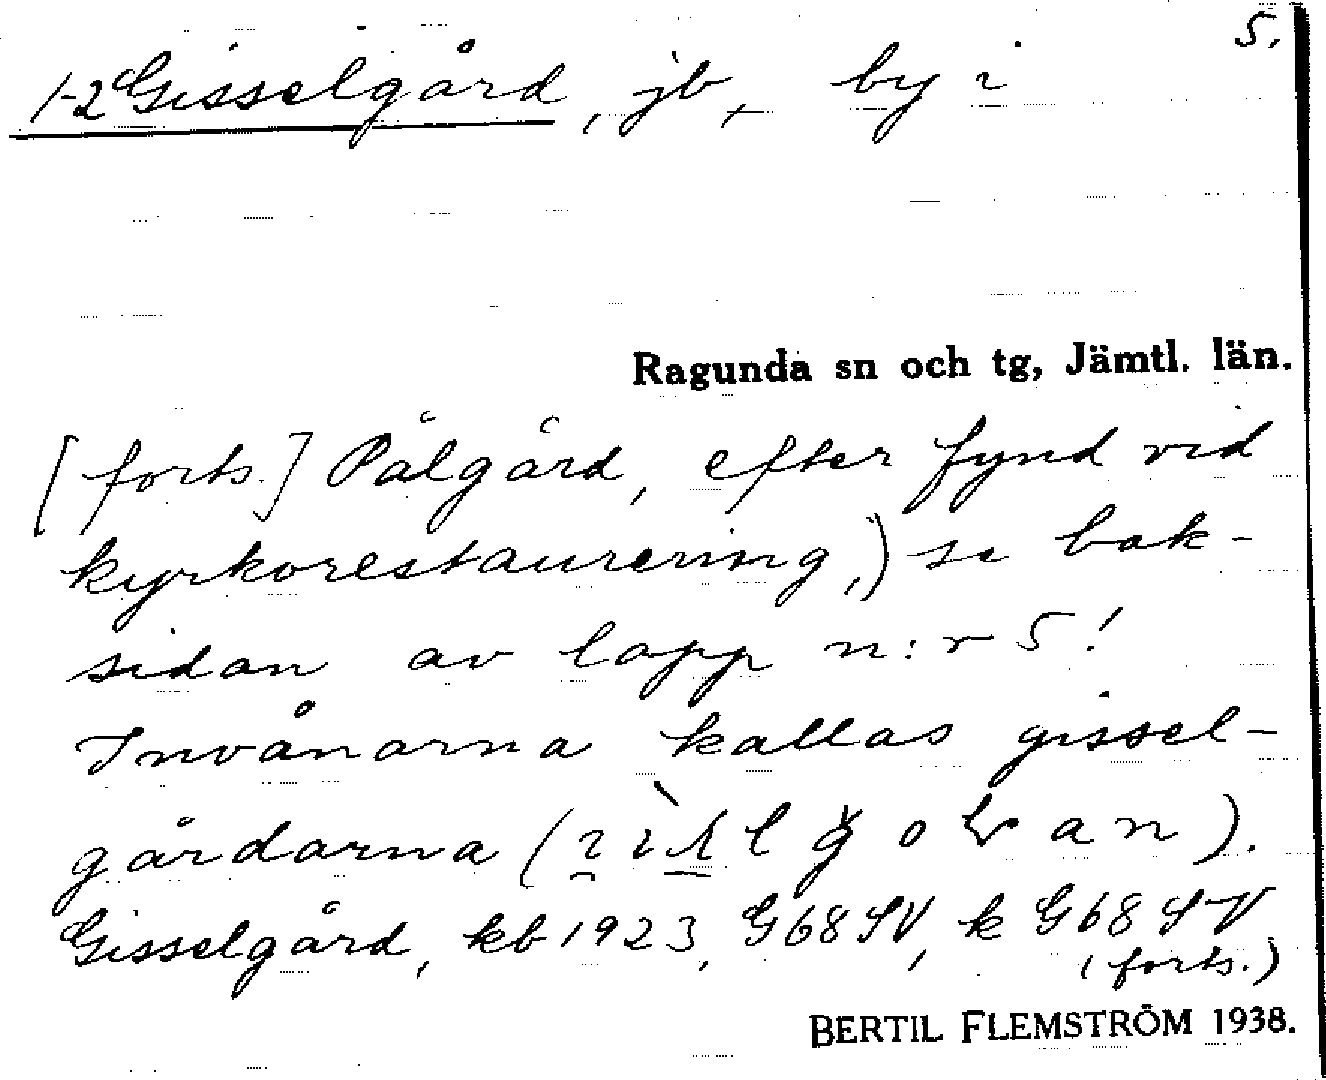 5.
1-2 Gisselgård, jb, by i
Ragunda sn och tg, Jämtl. län.
[forts.] Pålgård, efter fynd vid
kyrkorestaurering,) se bak-
sidan av lapp n:r 5!
Invånarna kallas gissel-
gårdarna
Gisselgård, kb 1923, G68SV, k G68SV
(forts.)
BERTIL FLEMSTRÖM 1938.